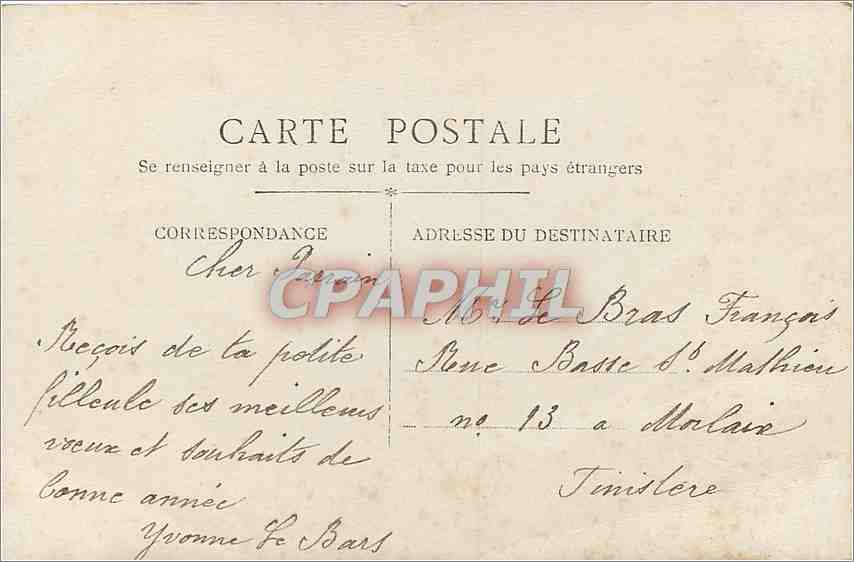 CARTE POSTALE
Se renseigner à la poste sur la taxe pour les pays étrangers
CORRESPONDANCE
Cher Parrain
Reçois de ta petite
filleule ses meilleurs
vœux et souhaits de
bonne année
Yvonne Le Bars
ADRESSE DU DESTINATAIRE
Mr Le Bras François
Rue Basse St Mathieu
no 13 a Morlaix
Finistère
CPAPHIL